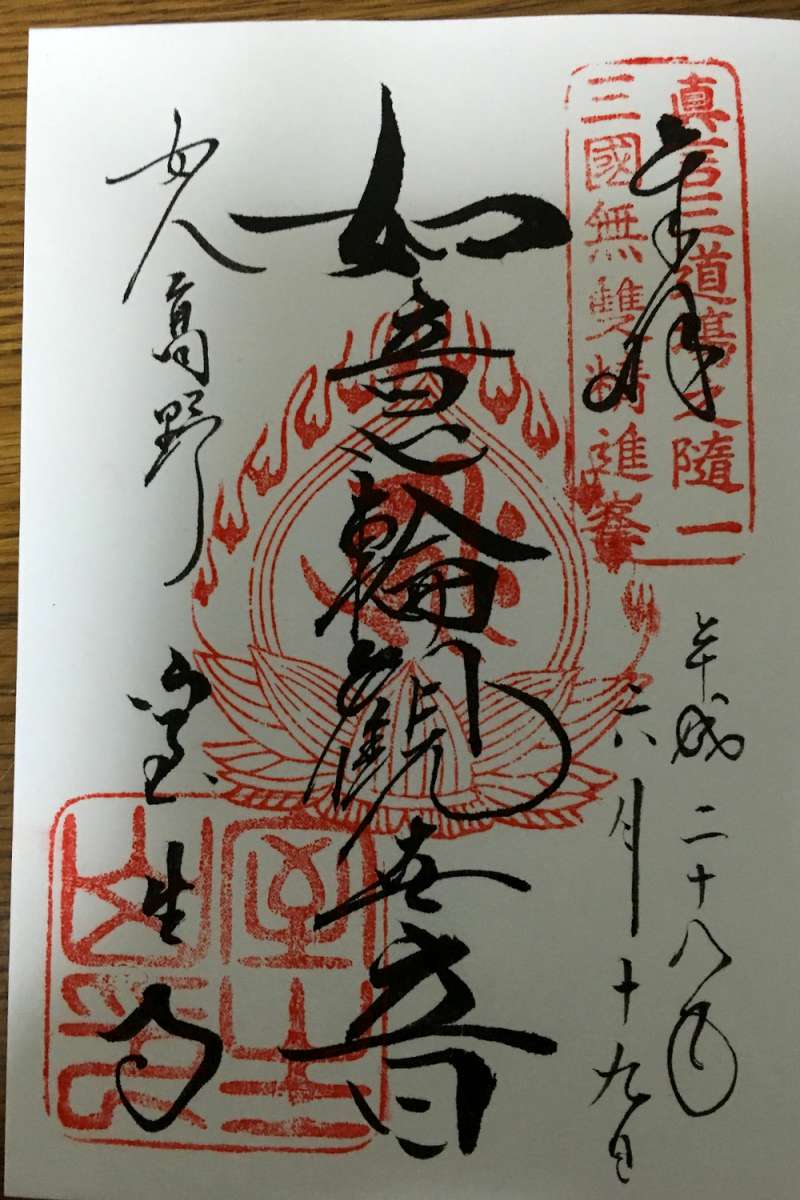 真言三道場之随一
三國無雙精進峯
奉拝
平成二十八年
六月十九日
如意輪観世音
女人高野
室生寺